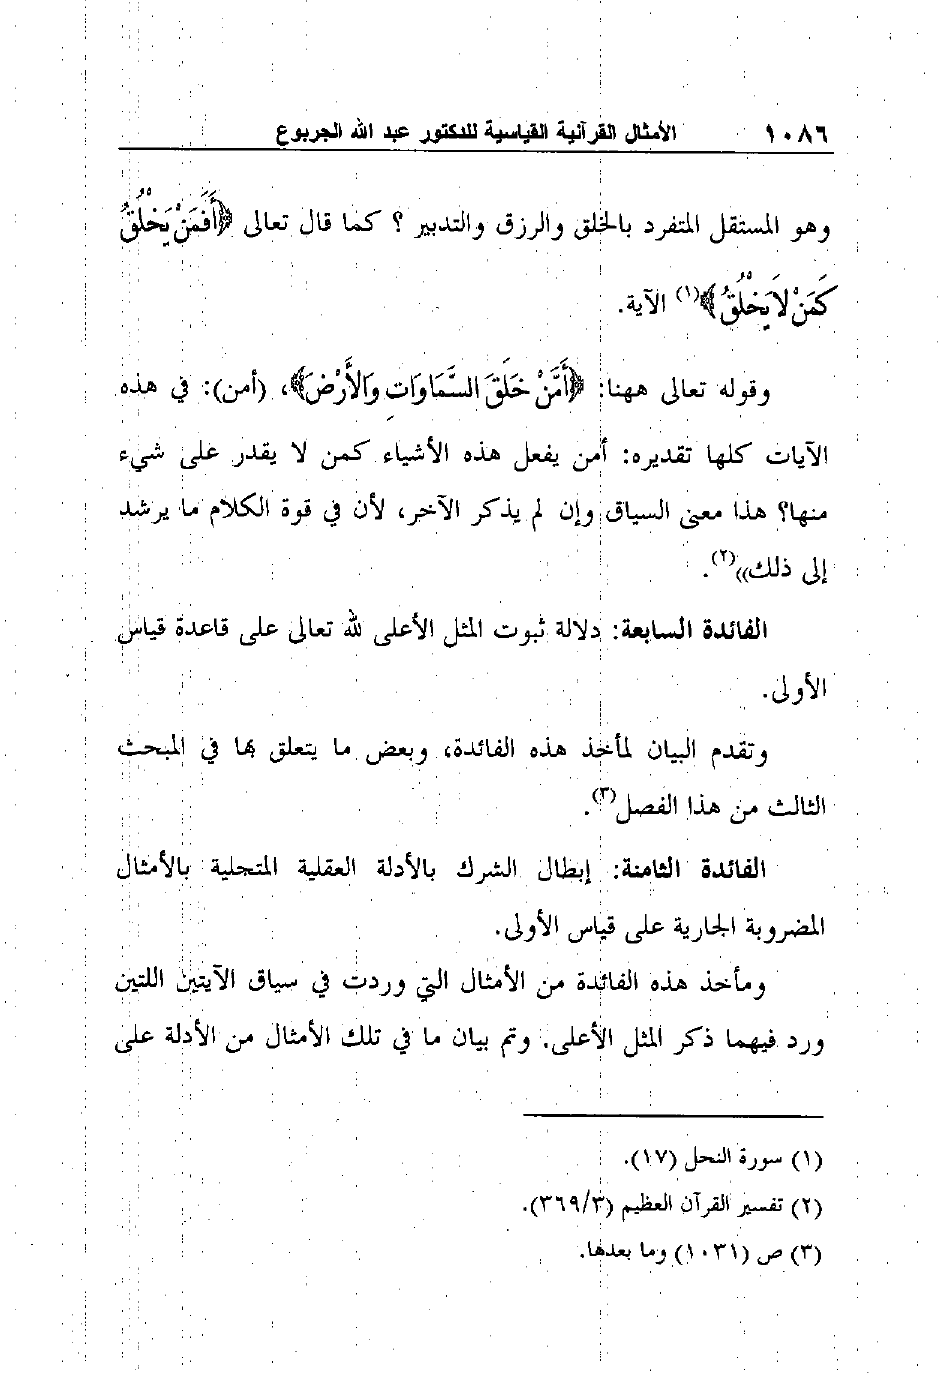 ١٠٨٦ الأمثال القرآنية القياسية للدكتور عبد الله الجربوع
وهو المستقل المتفرد بالخلق والرزق والتدبير ؟ كما قال تعالى ﴿أَفَمَنْ يَخْلُقُ
كَمَنْ لاَ يَخْلُقُ﴾(١) الآية.
وقوله تعالى ههنا: ﴿أَمَّنْ خَلَقَ السَّمَاوَاتِ وَالأَرْضَ﴾، (أمن): في هذه
الآيات كلها تقديره: أمن يفعل هذه الأشياء كمن لا يقدر على شيء
منها؟ هذا معنى السياق وإن لم يذكر الآخر، لأن في قوة الكلام ما يرشد
إلى ذلك))(٢).
الفائدة السابعة: دلالة ثبوت المثل الأعلى لله تعالى على قاعدة قياس
الأولى.
وتقدم البيان لمأخذ هذه الفائدة، وبعض ما يتعلق بها في المبحث
الثالث من هذا الفصل(٣).
الفائدة الثامنة: إبطال الشرك بالأدلة العقلية المتجلية بالأمثال
المضروبة الجارية على قياس الأولى.
ومأخذ هذه الفائدة من الأمثال التي وردت في سياق الآيتين اللتين
ورد فيهما ذكر المثل الأعلى. وتم بيان ما في تلك الأمثال من الأدلة على
(١) سورة النحل (١٧).
(٢) تفسير القرآن العظيم (٣٦٩/٣).
(٣) ص (١٠٣١) وما بعدها.